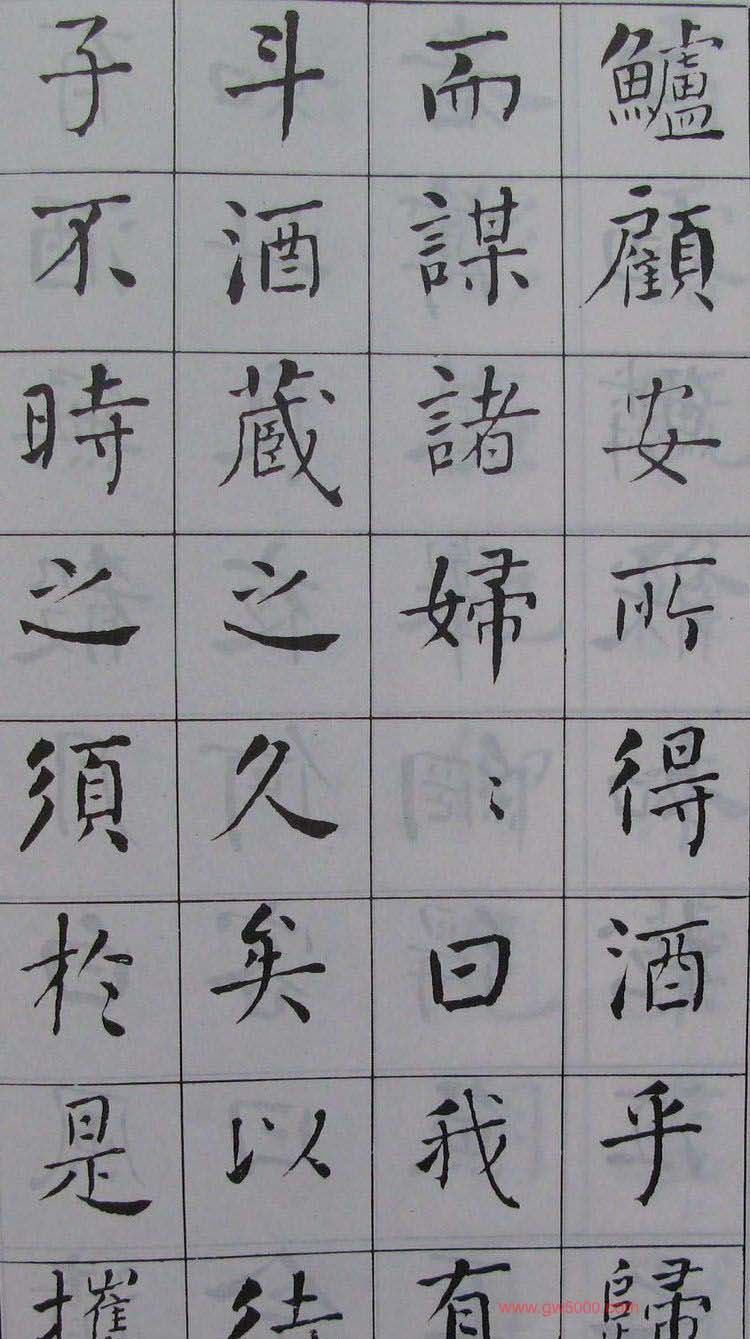 鱸顧安所得酒乎歸
而謀諸婦〻曰我有
斗酒蔵之久矣以待
子不時之須於是攜
www.gw5000.com